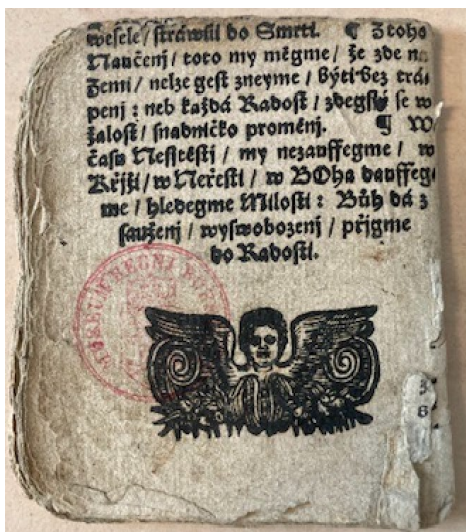 weſele / ſtráwili do Smrti. ¶ Z toho
Naučenj / toto my měgme / že zde na
Zemi / nelze geſt zneyme / býti bez trá⸗
penj : neb každá Radoſt / zdegſſý ſe w
žaloſt / ſnadničko proměnj. ¶ W
čaſu Neſſtěſtj / my nezauffegme / w
Křjži / w Neřeſti / w BOha dauffeg⸗
me / hledegme Miloſti : Bůh dá z
ſauženj / wyſwobozenj / přigme
do Radoſti.
MUSEUM REGNI
3
8